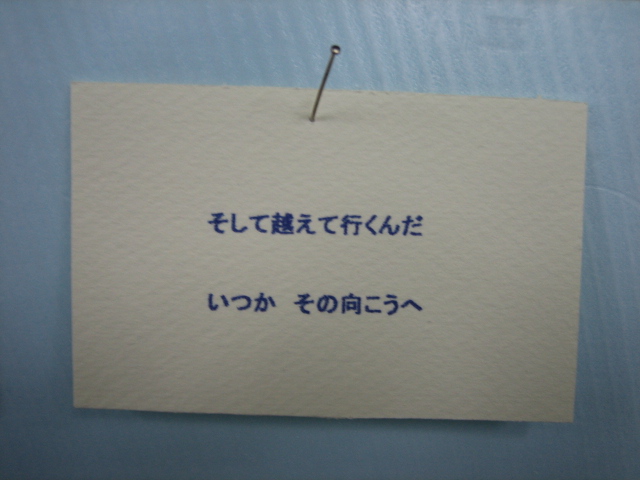 そして越えて行くんだ
いつか　その向こうへ